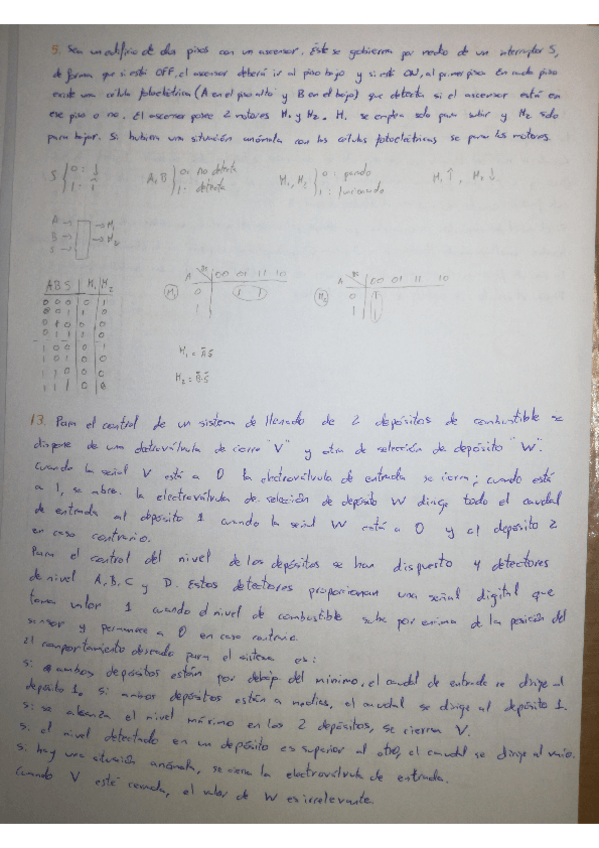 5. Sea un edificio de dos pisos con un ascensor. Éste se gobierna por medio de un interruptor S,
de forma que si está OFF, el ascensor deberá ir al piso bajo y si está ON, al primer piso. En cada piso
existe una célula fotoeléctrica (A en el piso alto y B en el bajo) que detecta si el ascensor está en
ese piso o no. El ascensor posee 2 motores M1 y M2. M1 se emplea solo para subir y M2 solo
para bajar. Si hubiera una situación anómala con las células fotoeléctricas se paran los motores.
S } 0: 1 A, B } 0: no detecta M1, M2 } 0: parado M1 ↑, M2 ↓
1: 1: detecta 1: funcionando
A → → M1
B → → M2
S →
A 00 01 11 10 A 00 01 11 10
A B S M1 M2
M1 0 1 1 M2 0 1
1 1 1
0 0 0 0 1
M1 =
M2 = B̄·S̄
13. Para el control de un sistema de llenado de 2 depósitos de combustible se
dispone de una electroválvula de cierre "V" y otra de selección de depósito "W".
Cuando la señal V está a 0 la electroválvula de entrada se cierra; cuando está
a 1, se abre. La electroválvula de selección de depósito W dirige todo el caudal
de entrada al depósito 1 cuando la señal W está a 0 y al depósito 2
en caso contrario.
Para el control del nivel de los depósitos se han dispuesto 4 detectores
de nivel A, B, C y D. Estos detectores proporcionan una señal digital que
toma valor 1 cuando el nivel de combustible sube por encima de la posición del
sensor y permanece a 0 en caso contrario.
El comportamiento deseado para el sistema es:
Si ambos depósitos están por debajo del mínimo, el caudal de entrada se dirige al
depósito 1. Si ambos depósitos están a medias, el caudal se dirige al depósito 1.
Si se alcanza el nivel máximo en los 2 depósitos, se cierra V.
Si el nivel detectado en un depósito es superior al otro, el caudal se dirige al vacío.
Si hay una situación anómala, se cierra la electroválvula de entrada.
Cuando V está cerrada, el valor de W es irrelevante.